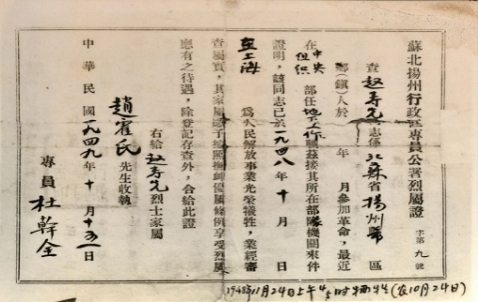 蘇北揚州行政區專員公署烈屬證
字第九號
查趙壽先志係江蘇省揚州縣 區
鄉(鎮)人於 年 月參加革命,最近
在中央組織部任地下工作職茲接其所在部隊機關來件
證明,該同志已於一九四八年十月 日
在上海 為人民解放事業光榮犧牲,業經審
查屬實,其家屬應予按照撫卹優屬條例享受烈屬
應有之待遇,除登記存查外,合給此證
右給趙壽先烈士家屬
趙霍氏先生收執
中華民國一九四九年十月十五日
專員 杜幹全
1948年11月24日上午 時犧牲(农10月24日)